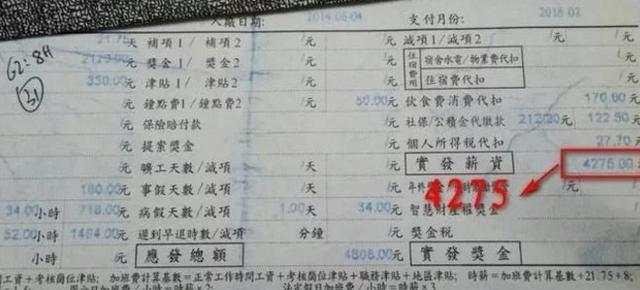 入職日期: 2014-06-04 支付月份: 2016-02
62:8H 31.75 天 補項1/ 補項2 /元 減項1/減項2 /元
元 獎金1/ 獎金2 /元 住宿費用 宿舍水電/物業費代扣
31 350.00 元 津貼1/ 津貼2 /元 住宿費代扣
元 鐘點費1/鐘點費2 /元 50.00 元 飲食費消費代扣 170.60 元
元 保險賠付款 /元 社保/公積金代繳款 212.20 元 122.50 元
/元 提案獎金 /元 個人所得稅代扣 27.70 元
/元 曠工天數/減項 /天 /元 實發薪資 4275.00 元
180.00 元 事假天數/減項 /天 /元 /元
4275
34.00 小時 718.00 元 病假天數/減項 1.00 天 34.00 元 智慧財產權獎金 元
52.00 小時 1484.00 元 遲到早退時數/減項 分鐘 /元 獎金稅 元
小時 /元 應發總額 4808.00 元 實發獎金 元
工資+考核崗位津貼; 加班費計算基數=正常工作時間工資+考核崗位津貼+職務津貼+地區津貼; 時薪=加班費計算基數÷21.75÷8;